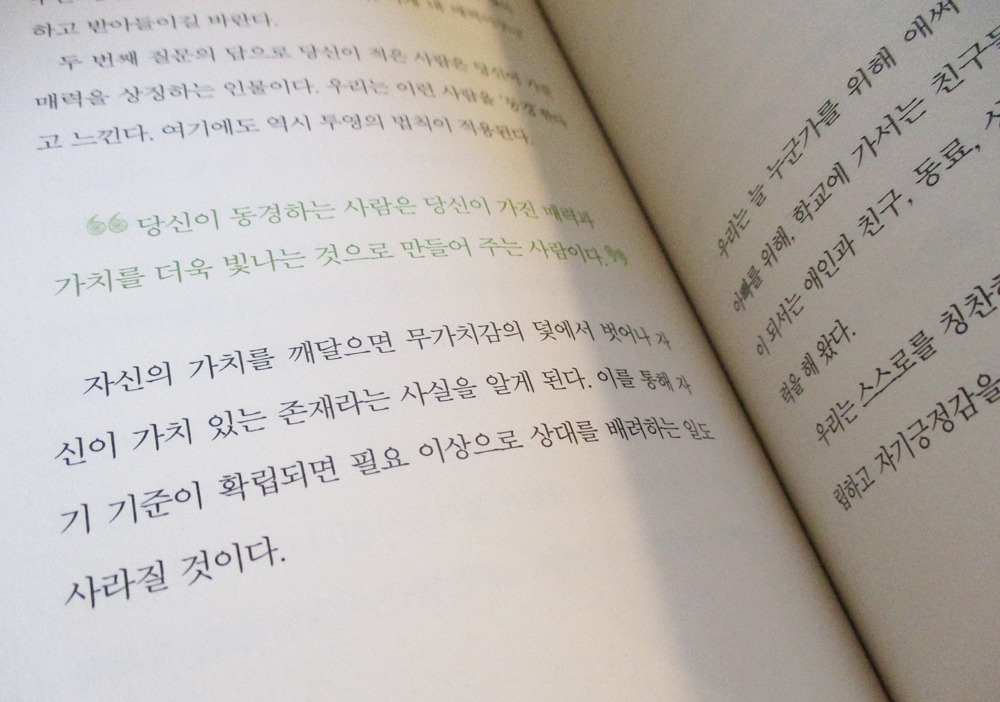 하고 받아들이길 바란다.
두 번째 질문의 답으로 당신이 적은 사람은 당신이 가진
매력을 상징하는 인물이다. 우리는 이런 사람을 '동경'한다
고 느낀다. 여기에도 역시 투영의 법칙이 적용된다.
“당신이 동경하는 사람은 당신이 가진 매력과
가치를 더욱 빛나는 것으로 만들어 주는 사람이다.”
자신의 가치를 깨달으면 무가치감의 덫에서 벗어나 자
신이 가치 있는 존재라는 사실을 알게 된다. 이를 통해 자
기 기준이 확립되면 필요 이상으로 상대를 배려하는 일도
사라질 것이다.
우리는 늘 누군가를 위해 애써
아빠를 위해, 학교에 가서는 친구들
이 되서는 애인과 친구, 동료,
력을 해 왔다.
우리는 스스로를 칭찬하
립하고 자기긍정감을